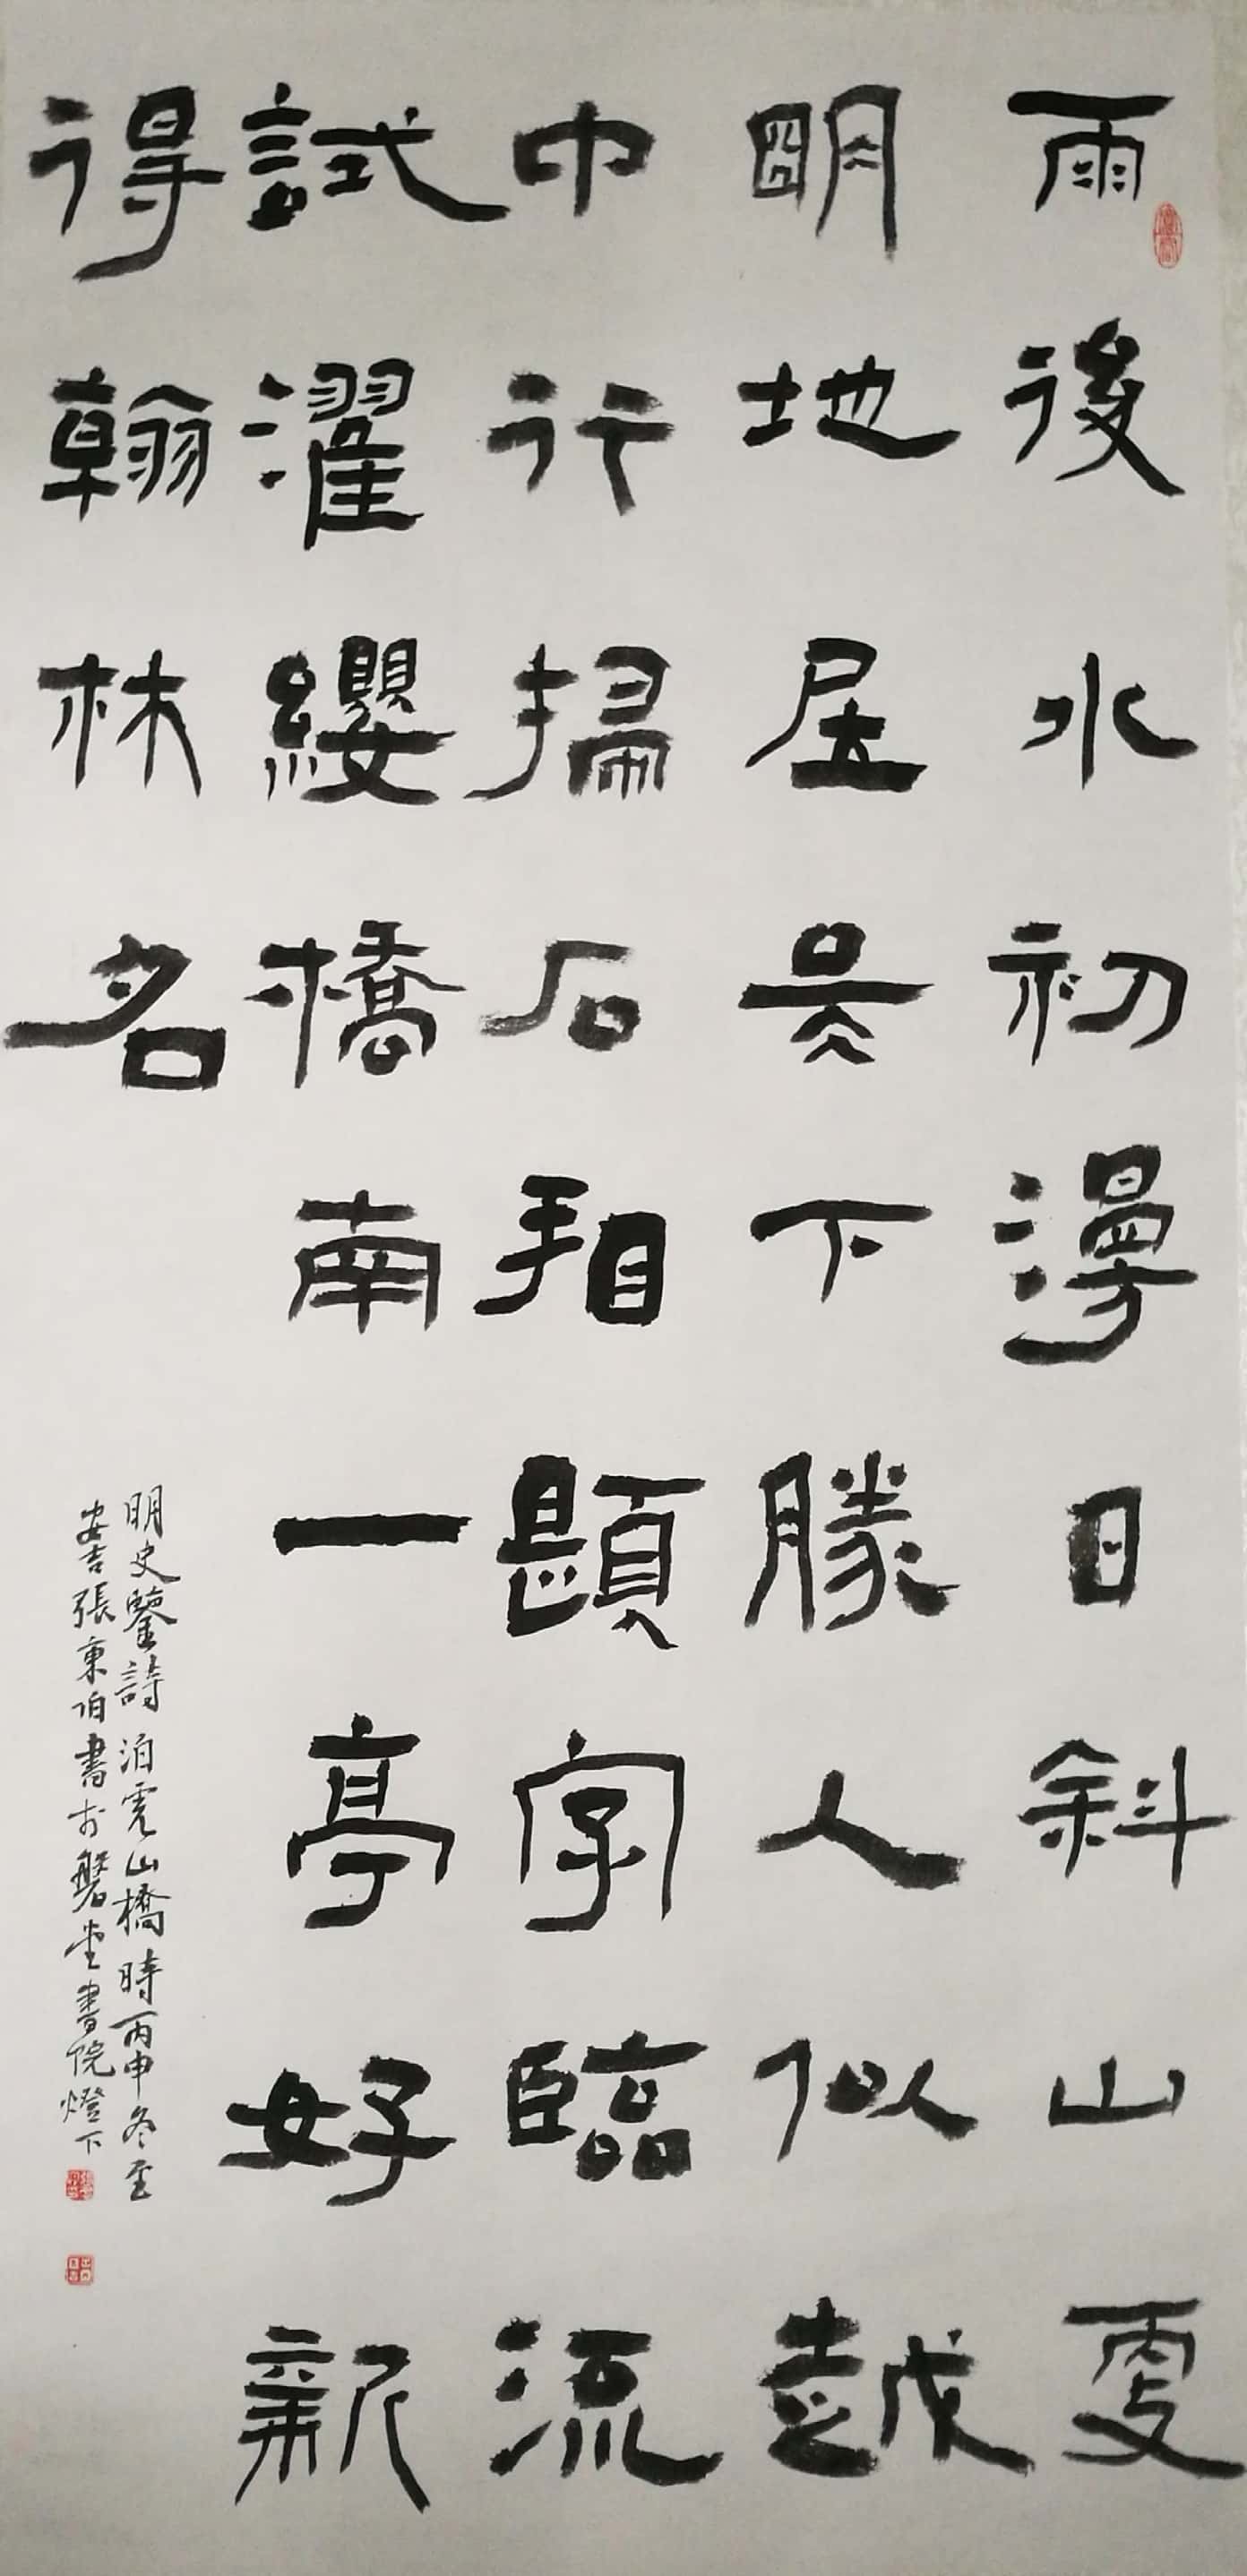 雨後水初漫日斜山更
明地居吳下勝人似越
中行掃石相題字臨流
試濯纓橋南一亭好新
得翰林名
明史鑒詩泊虎山橋時丙申冬至
安吉張東伯書於磐堂書院燈下